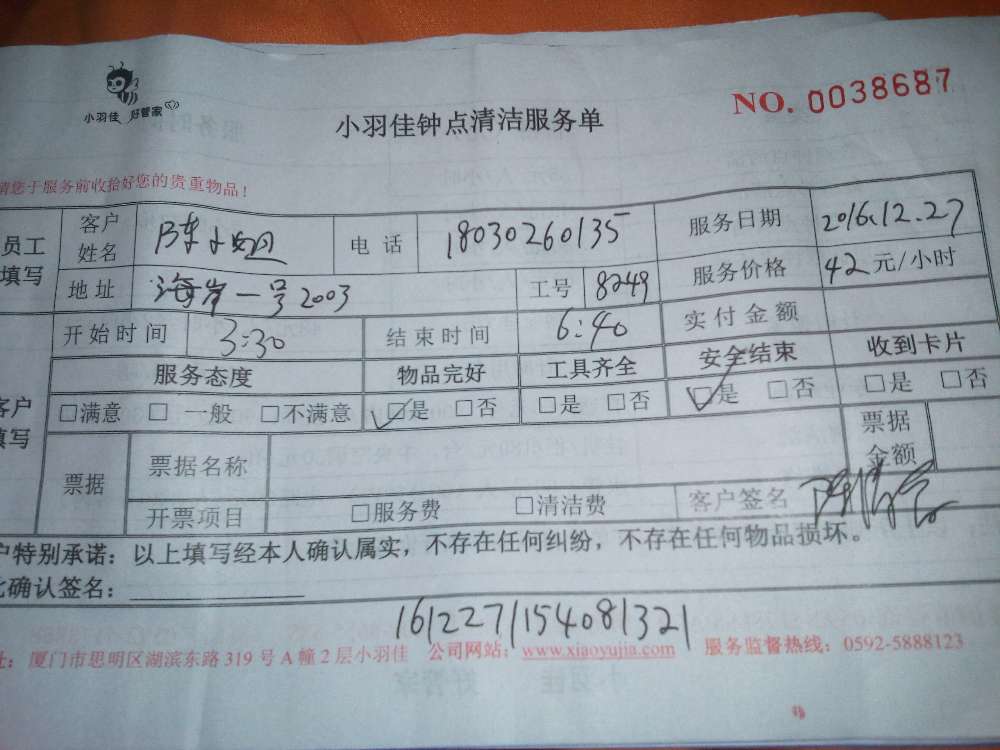 小羽佳 好管家
小羽佳钟点清洁服务单
NO. 0038687
请您于服务前收拾好您的贵重物品！
员工填写 客户姓名 陈小姐 电话 18030260135 服务日期 2016.12.27
地址 海岸一号2003 工号 8249 服务价格 42元/小时
开始时间 3:30 结束时间 6:40 实付金额
服务态度 物品完好 工具齐全 安全结束 收到卡片
客户填写 □满意 □一般 □不满意 □是 □否 □是 □否 □是 □否 □是 □否
票据 票据名称 票据金额
开票项目 □服务费 □清洁费 客户签名
户特别承诺：以上填写经本人确认属实，不存在任何纠纷，不存在任何物品损坏。
此确认签名：
161227154081321
址：厦门市思明区湖滨东路319号A幢2层小羽佳 公司网站：www.xiaoyujia.com 服务监督热线：0592-5888123